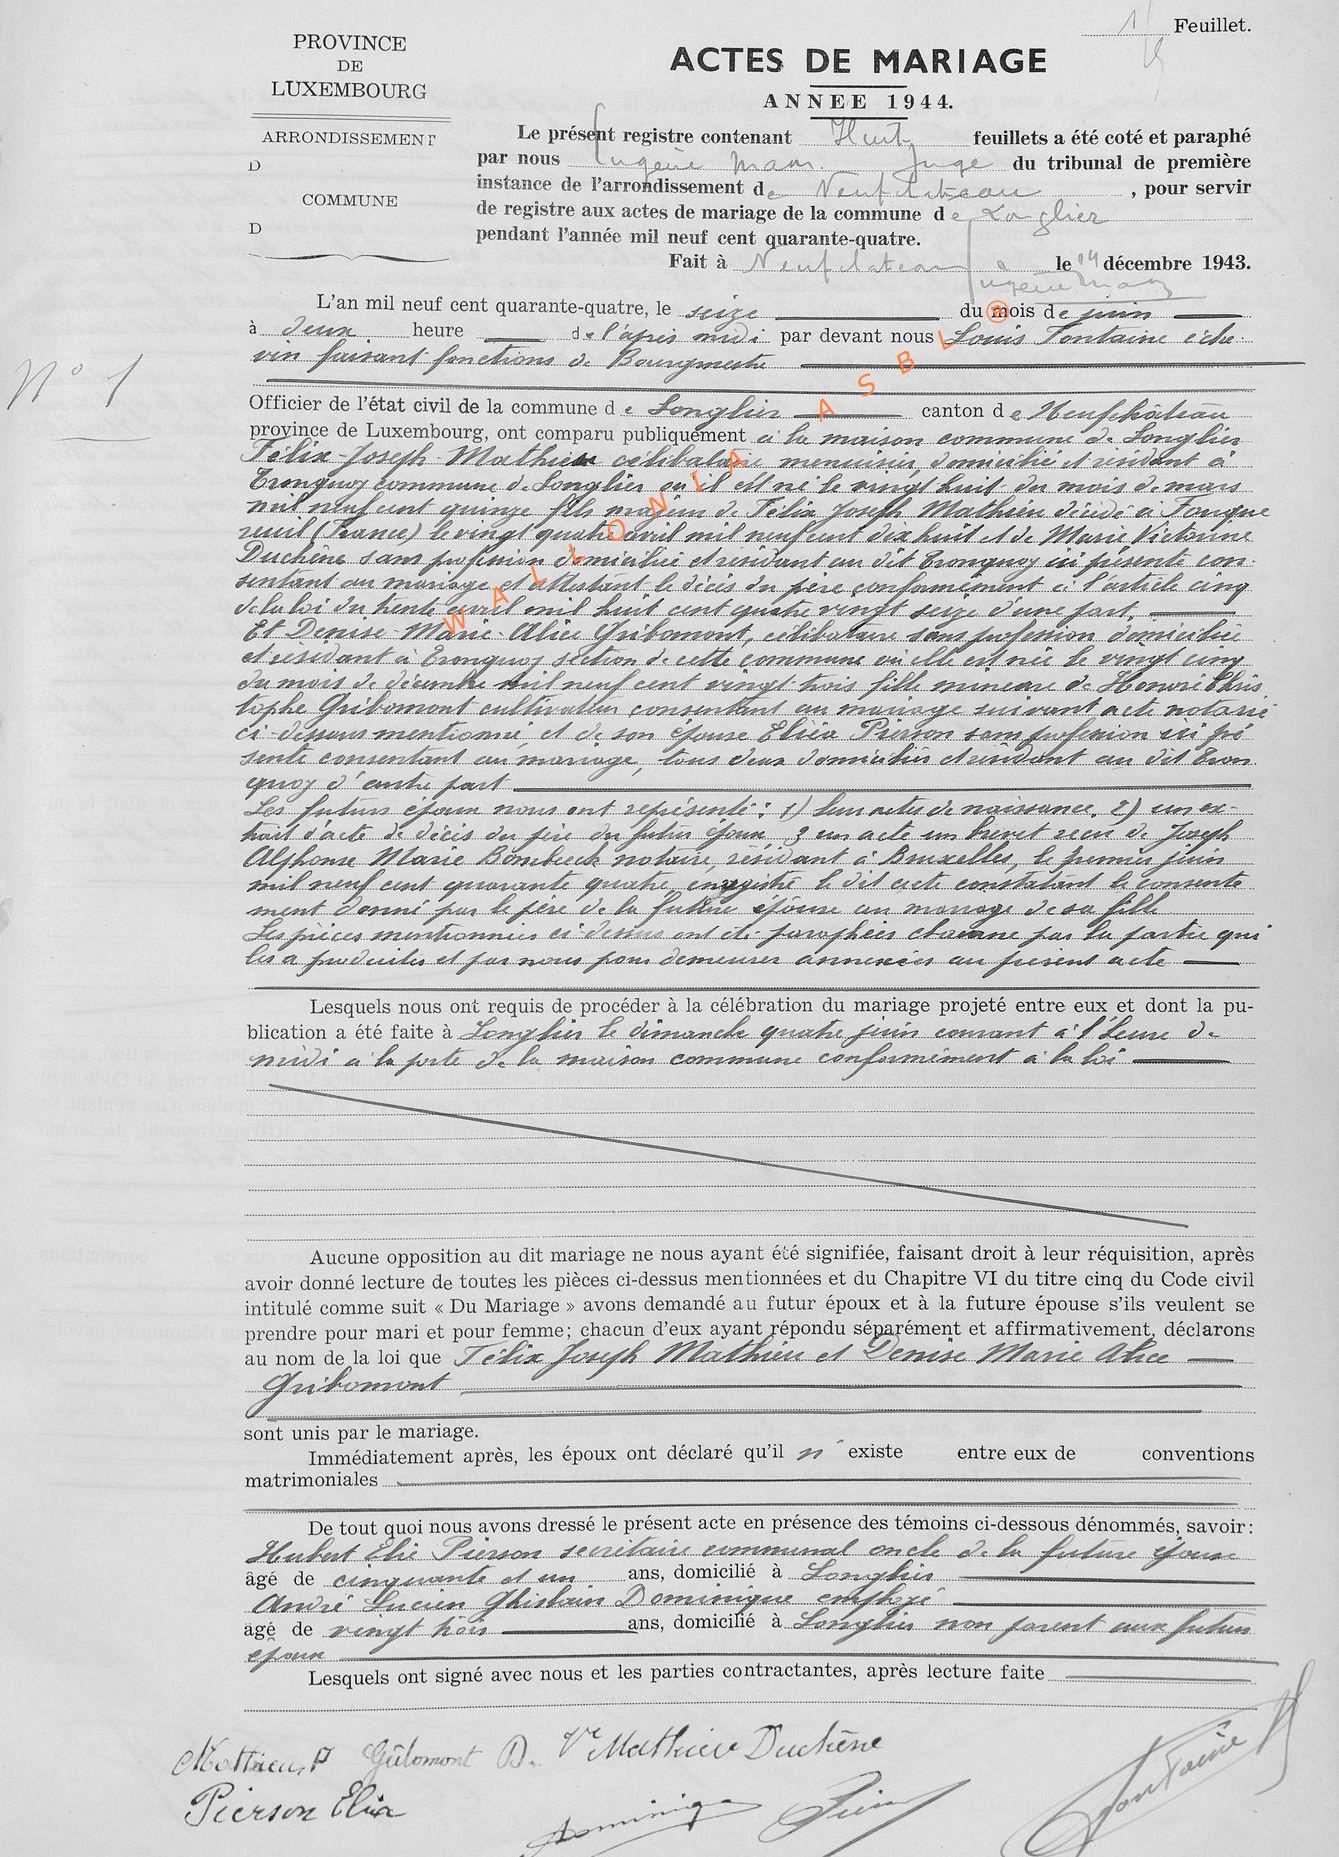 1 Feuillet.
PROVINCE
DE
LUXEMBOURG
ARRONDISSEMENT
D
COMMUNE
D
ACTES DE MARIAGE
ANNEE 1944.
Le présent registre contenant Huit feuillets a été coté et paraphé
par nous Eugène Juge du tribunal de première
instance de l'arrondissement de Neufchateau , pour servir
de registre aux actes de mariage de la commune de Longlier
pendant l'année mil neuf cent quarante-quatre.
Fait à Neufchateau le 14 décembre 1943.
N° 1
L'an mil neuf cent quarante-quatre, le seize du mois de juin
à deux heure de l'après midi par devant nous Louis Fontaine éche-
vin faisant fonctions de Bourgmestre
Officier de l'état civil de la commune de Longlier canton de Neufchâteau
province de Luxembourg, ont comparu publiquement à la maison commune de Longlier
Félix-Joseph Mathieu célibataire menuisier, domicilié et résidant à
Tronquoy commune de Longlier ou il est né le vingt huit du mois de mars
mil neuf cent quinze fils majeur de Félix Joseph Mathieu décédé à Fouque
reuil (France) le vingt quatre avril mil neuf cent dix huit et de Marie Victorine
Duchêne sans profession domiciliée et résidant au dit Tronquoy ici présente con-
sentant au mariage et attestant le décès du père conformément à l'article cinq
de la loi du trente avril mil huit cent quatre vingt seize d'une part,
Et Denise-Marie-Alice Gribomont, célibataire sans profession domiciliée
et résidant à Tronquoy section de cette commune où elle est née le vingt cinq
du mois de décembre mil neuf cent vingt trois fille mineure de Honoré Chris
tophe Gribomont cultivateur consentant au mariage suivant acte notarié
ci-dessous mentionné, et de son épouse Elisa Pierson sans profession ici pré
sente consentant au mariage, tous deux domiciliés et résidant au dit Tron
quoy d'autre part
Les futurs époux nous ont représenté : 1) leurs actes de naissance. 2) un ex-
trait d'acte de décès du père du futur époux 3 un acte en brevet reçu de Joseph
Alphonse Marie notaire, résidant à Bruxelles, le premier juin
mil neuf cent quarante quatre, enregistré le dit acte constatant le consente
ment donné par le père de la future épouse au mariage de sa fille
Les pièces mentionnées ci-dessus ont été paraphées chacune par la partie qui
les a produites et par nous pour demeurer annexées au présent acte
Lesquels nous ont requis de procéder à la célébration du mariage projeté entre eux et dont la pu-
blication a été faite à Longlier le dimanche quatre juin courant à l'heure de
midi à la porte de la maison commune conformément à la loi
Aucune opposition au dit mariage ne nous ayant été signifiée, faisant droit à leur réquisition, après
avoir donné lecture de toutes les pièces ci-dessus mentionnées et du Chapitre VI du titre cinq du Code civil
intitulé comme suit « Du Mariage » avons demandé au futur époux et à la future épouse s'ils veulent se
prendre pour mari et pour femme; chacun d'eux ayant répondu séparément et affirmativement, déclarons
au nom de la loi que Félix Joseph Mathieu et Denise Marie Alice
Gribomont
sont unis par le mariage.
Immédiatement après, les époux ont déclaré qu'il n'existe entre eux de conventions
matrimoniales
De tout quoi nous avons dressé le présent acte en présence des témoins ci-dessous dénommés, savoir:
Hubert Elie Pierson secrétaire communal oncle de la future épouse
âgé de cinquante et un ans, domicilié à Longlier
André Lucien Ghislain Dominique employé
âgé de vingt trois ans, domicilié à Longlier non parent aux futurs
époux
Lesquels ont signé avec nous et les parties contractantes, après lecture faite
Mathieu F Gribomont D. Ve Mathieu Duchêne
Pierson Elisa Dominique Pierson Fontaine
WALLONIA ASBL ®